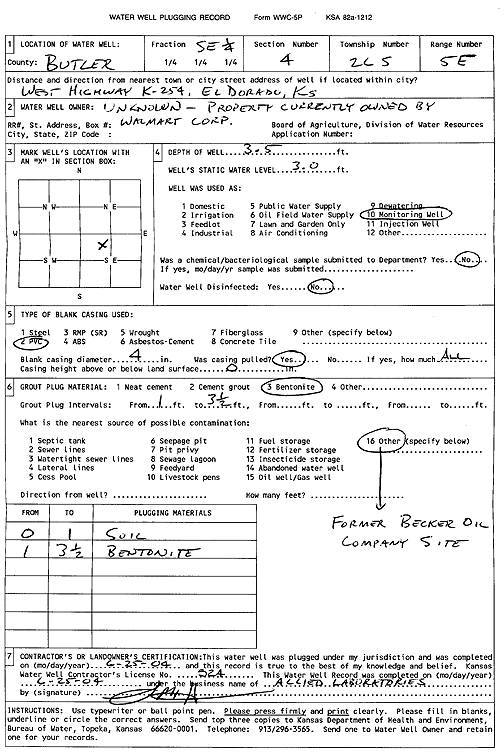 WATER WELL PLUGGING RECORD Form WWC-5P KSA 82a-1212
1 LOCATION OF WATER WELL: Fraction SE ¼ Section Number Township Number Range Number
County: BUTLER 1/4 1/4 1/4 4 26 S 5E
Distance and direction from nearest town or city street address of well if located within city?
WEST HIGHWAY K-254, EL DORADO, KS
2 WATER WELL OWNER: UNKNOWN - PROPERTY CURRENTLY OWNED BY
RR#, St. Address, Box #: WALMART CORP. Board of Agriculture, Division of Water Resources
City, State, ZIP Code : Application Number:
3 MARK WELL'S LOCATION WITH AN "X" IN SECTION BOX:
N
N W N E
W E
X
S W S E
S
4 DEPTH OF WELL...3.5...ft.
WELL'S STATIC WATER LEVEL...3.0...ft.
WELL WAS USED AS:
1 Domestic 5 Public Water Supply 9 Dewatering
2 Irrigation 6 Oil Field Water Supply 10 Monitoring Well
3 Feedlot 7 Lawn and Garden Only 11 Injection Well
4 Industrial 8 Air Conditioning 12 Other.....
Was a chemical/bacteriological sample submitted to Department? Yes...No...
If yes, mo/day/yr sample was submitted.....
Water Well Disinfected: Yes.....No...
5 TYPE OF BLANK CASING USED:
1 Steel 3 RMP (SR) 5 Wrought 7 Fiberglass 9 Other (specify below)
2 PVC 4 ABS 6 Asbestos-Cement 8 Concrete Tile
Blank casing diameter...4...in. Was casing pulled? Yes... No..... If yes, how much ALL
Casing height above or below land surface...0...in.
6 GROUT PLUG MATERIAL: 1 Neat cement 2 Cement grout 3 Bentonite 4 Other.....
Grout Plug Intervals: From..1..ft. to 3½ ft., From..... to .....ft., From..... to.....ft.
What is the nearest source of possible contamination:
1 Septic tank 6 Seepage pit 11 Fuel storage 16 Other (specify below)
2 Sewer lines 7 Pit privy 12 Fertilizer storage
3 Watertight sewer lines 8 Sewage lagoon 13 Insecticide storage
4 Lateral lines 9 Feedyard 14 Abandoned water well
5 Cess Pool 10 Livestock pens 15 Oil well/Gas well
Direction from well? ..... How many feet? .....
FROM TO PLUGGING MATERIALS
0 1 SOIL
1 3½ BENTONITE
FORMER BECKER OIL
COMPANY SITE
7 CONTRACTOR'S OR LANDOWNER'S CERTIFICATION: This water well was plugged under my jurisdiction and was completed
on (mo/day/year)...6-25-04... and this record is true to the best of my knowledge and belief. Kansas
Water Well Contractor's License No. ... 524... This Water Well Record was completed on (mo/day/year)
6-25-04 under the business name of ALLIED LABORATORIES
by (signature)
INSTRUCTIONS: Use typewriter or ball point pen. Please press firmly and print clearly. Please fill in blanks,
underline or circle the correct answers. Send top three copies to Kansas Department of Health and Environment,
Bureau of Water, Topeka, Kansas 66620-0001. Telephone: 913/296-3565. Send one to Water Well Owner and retain
one for your records.